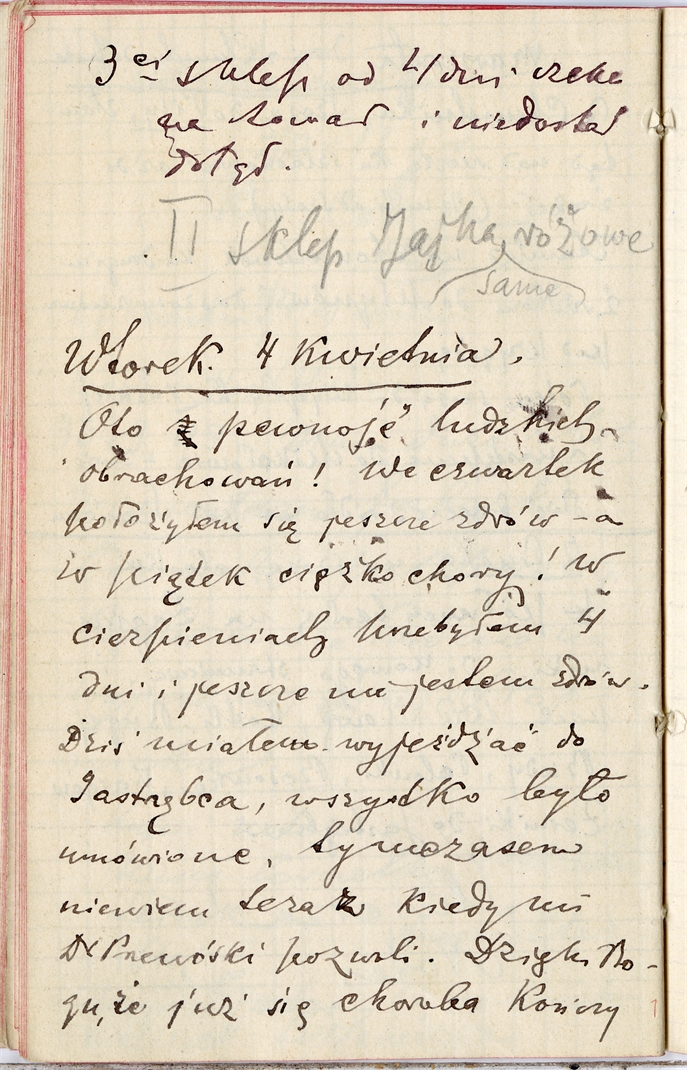 3ci sklep od 4 dni czeka
na towar i niedostał
dotąd.
II sklep Jajka różowe
same
Wtorek. 4 Kwietnia.
Oto pewność ludzkich
obrachowań! We czwartek
położyłem się jeszcze zdrów – a
w piątek ciężko chory! W
cierpieniach przebyłem 4
dni i jeszcze nie jestem zdrów.
Dziś miałem wyjeżdżać do
Jastrzębca, wszystko było
umówione, tymczasem
niewiem teraz kiedy mi
Dr pozwoli. Dzięki Bo-
gu, że już się choroba Kończy